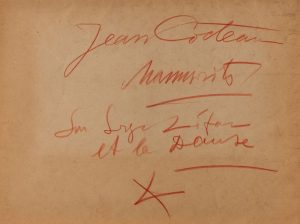 Jean Cocteau
Manuscrits
Sur Serge Lifar
et la Danse